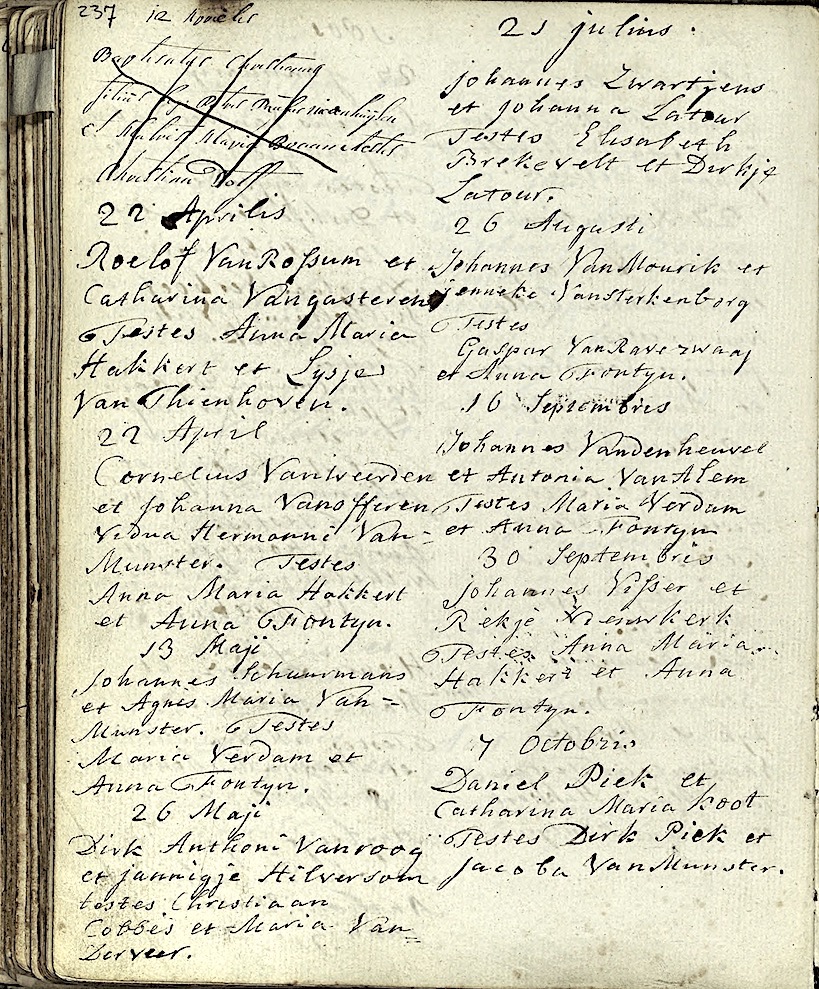 237 12
Baptisatus
filius
et Maria
Christina
22 Aprilis
Roelof VanRossum et
Catharina Vangasteren
Testes Anna Maria
Hakkert et Lysje
Van Thienhoven.
22 April
Cornelius Vanweerden
et Johanna Vanofferen
Vidua Hermanni Van-
Munster. Testes
Anna Maria Hakkert
et Anna Fontyn.
13 Maji
Johannes Schuurmans
et Agnis Maria Van=
Munster. Testes
Maria Verdam et
Anna Fontyn.
26 Maji
Dirk Anthoni Vanroog
et jannigje Hilversom
testes Christiaan
Cobbes et Maria Van=
Derveer.
21 julius.
Johannes Zwartjens
et Johanna Latour
Testes Elisabeth
Brekevelt et Dirkje
Latour.
26 Augusti
Johannes VanMourik et
jenneke Vansterkenborg
Testes
Gaspar VanRavezwaaj
et Anna Fontyn.
16 Septembris
Johannes Vandenheuvel
et Antonia VanAlem
Testes Maria Verdam
et Anna Fontyn
30 Septembris
Johannes Visser et
Rekje
Testes Anna Maria
Hakkert et Anna
Fontyn.
7 Octobris
Daniel Piek et
Catharina Maria Koot
Testes Dirk Piek et
Jacoba VanMunster.